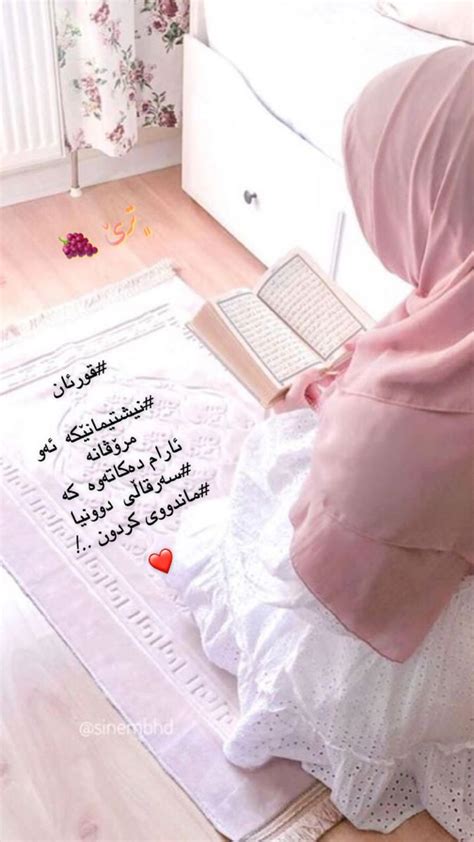 ترێ 🍇
#قورئان
#نیشتیمانێکە ئەو
مرۆڤانە
ئارام دەکاتەوە کە
#سەرقاڵی دوونیا
#ماندووی کردون ..!
❤️
@sinembhd